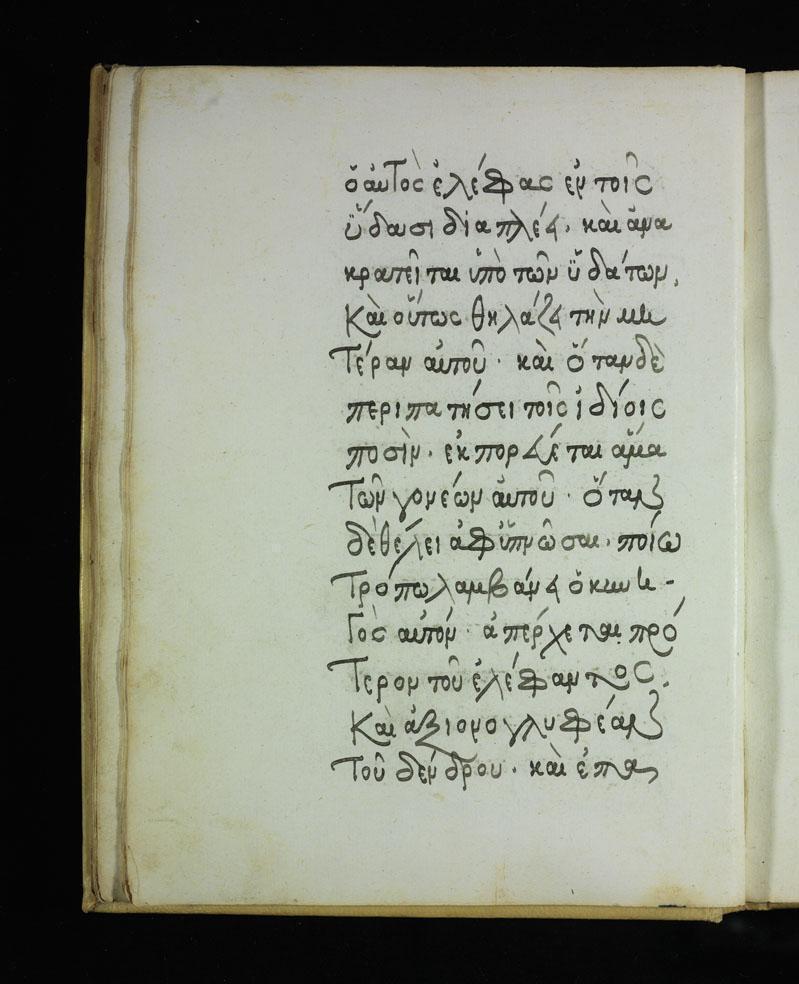 ὁ αὐτὸς ἐλέφας ἐν τοῖς
ὕδασι διαπλέει. καὶ ἅμα
κρατεῖται ὑπὸ τῶν ὑδάτων,
Καὶ οὕτως θηλάζει τὴν μη
Τέραν αὐτοῦ · καὶ ὅταν δὲ
περιπατήσει τοῖς ἰδίοις
ποσὶν · ἐκπορεύεται ἅμα
Τῶν γονέων αὐτοῦ · Ὅταν
δὲ θέλει ἀφϋπνῶσαι · ποίω
Τρόπω λαμβάνει ὁ κυνη -
Γὸς αὐτόν · ἀπέρχεται πρό
Τερον τοῦ ἐλέφαντος.
Καὶ ἀξιονογλυφέαν
Τοῦ δένδρου · καὶ ἐπα